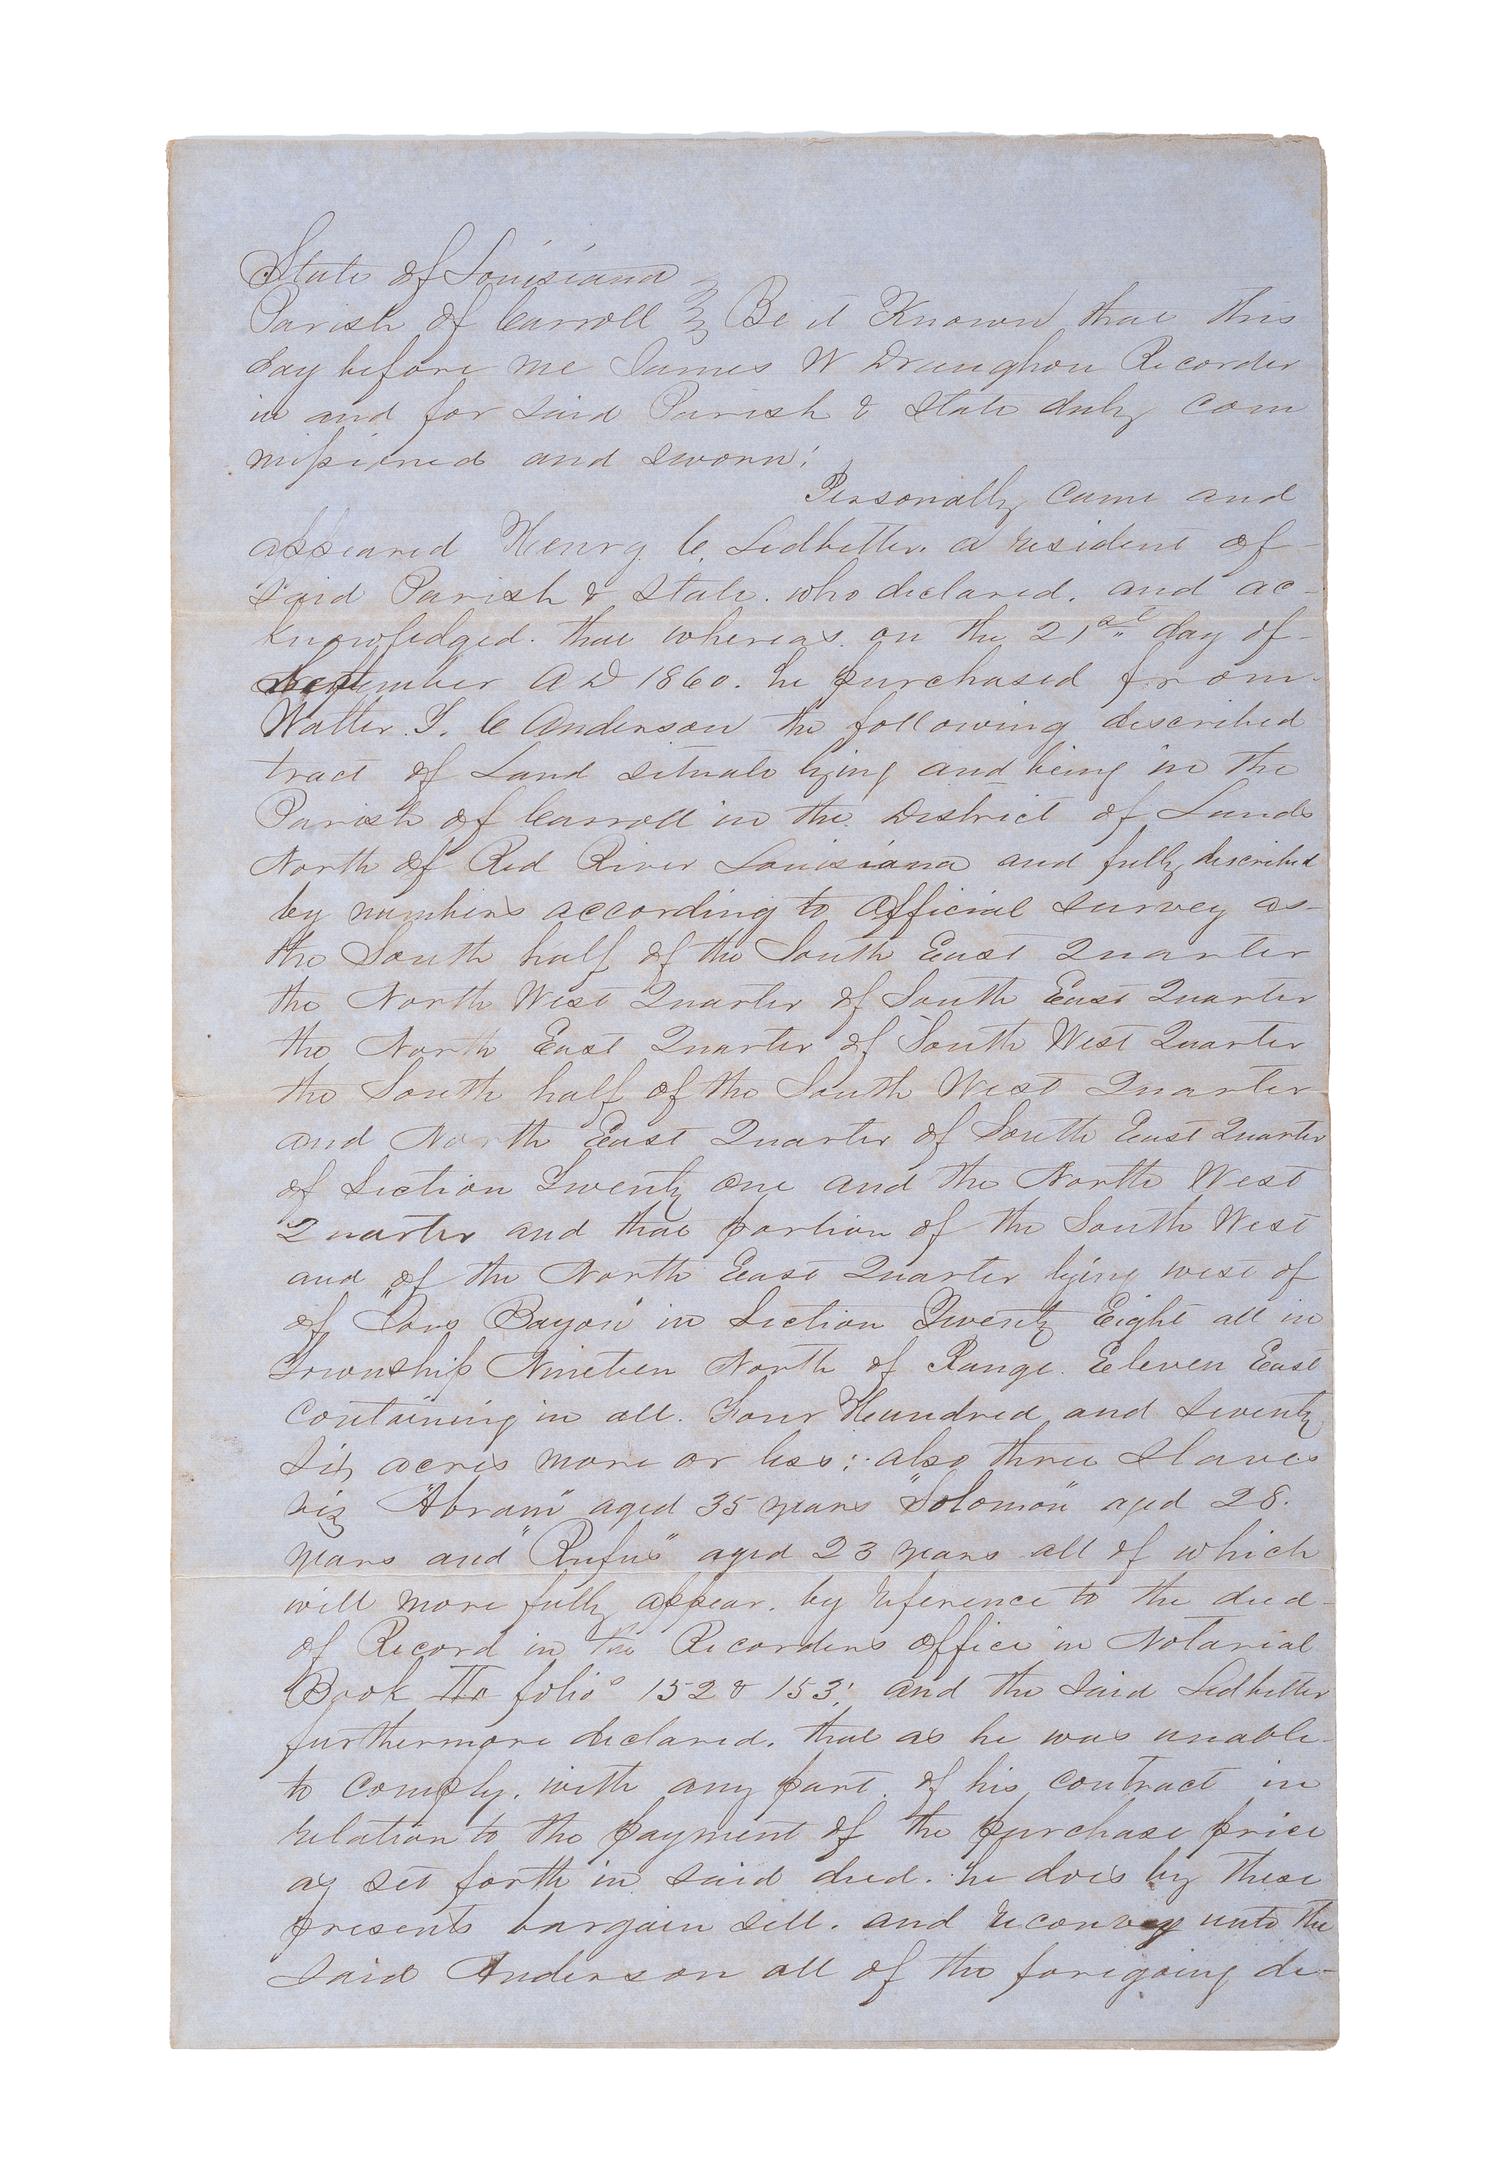 State of Louisiana
Parish of Carroll Be it Known that this
day before me James W Draughon Recorder
in and for said Parish & State duly com
missioned and sworn;
Personally came and
appeared Henry C. Ledbetter. a resident of
said Parish & State. who declared. and ac-
knowledged. that whereas. on the 21st day of
September A D 1860. he purchased from
Walter T. C Anderson the following described
tract of Land situate lying and being in the
Parish of Carroll in the District of Lands
North of Red River Louisiana and fully described
by numbers according to Official survey as-
the South half of the South East Quarter
the North West Quarter of South East Quarter
the North East Quarter of South West Quarter
the South half of the South West Quarter
and North East Quarter of South East Quarter
of Section Twenty One and the North West
Quarter and that portion of the South West
and of the North East Quarter lying west of
of Bayou" in Section Twenty Eight all in
Township Nineteen North of Range. Eeleven East
containing in all. Four Hundred and Seventy
Six acres more or less: also three Slaves
viz "Abram" aged 35 years "Solomon" aged 28.
years and "Rufus" aged 23 years all of which
will more fully appear. by reference to the deed-
of Record in the Recorders Office in Notarial
Book folio 152 & 153; and the said Ledbetter
furthermore declared. that as he was unable
to comply. with any part. of his contract in
relation to the payment of the purchase price
as set forth in said deed. he does by these
presents bargain sell. and reconvey unto the
said Anderson all of the foregoing de-